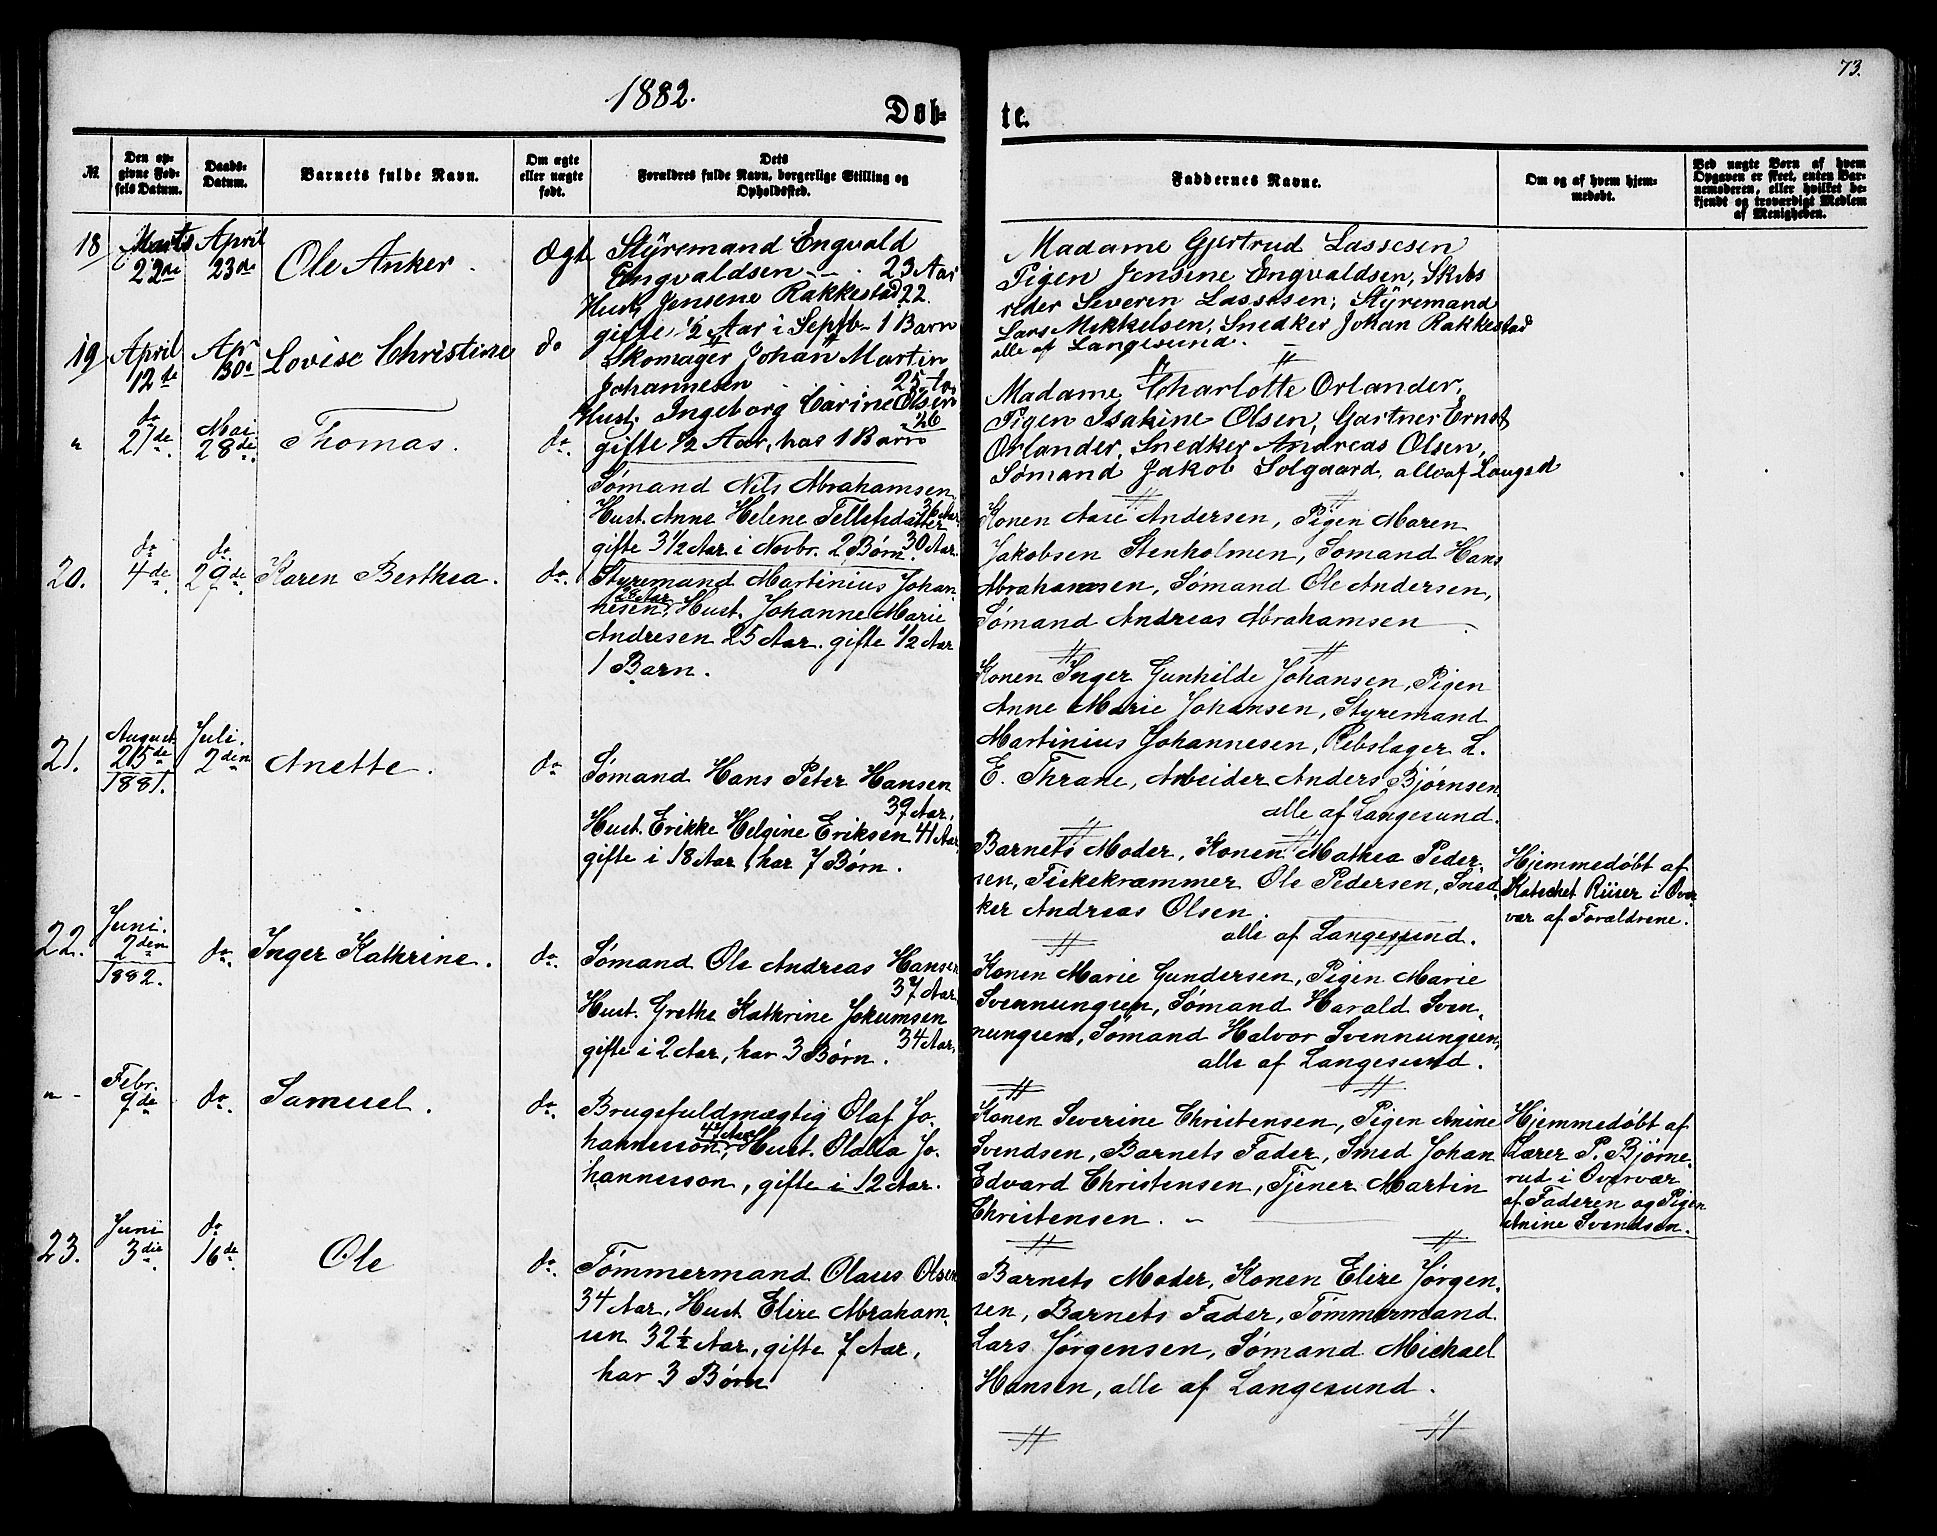 73.
1882.
Døbte.
№
Den opgivne Fødsels Datum.
Daabs-Datum.
Barnets fulde Navn.
Om ægte eller uægte født.
Dets Forældres fulde Navn, borgerlige Stilling og Opholdssted.
Faddernes Navne.
Om og af hvem hjemmedøbt.
Ved uægte Børn af hvem Opgaven er skeet, enten Barnemoderen, eller hvilket bekjendt og troværdigt Medlem af Menigheden.
18 Marts 22de April 23de Ole Anker. Ægt
Styremand Engvald
Engvaldsen - - . 23 Aar
Hust. Jensene Rakkestad 22.
gifte 1/2 Aar i Septb- 1 Barn
Madame Gjertrud Lassesen
Pigen Jensine Engvaldsen, Skibs
reder Severen Lassesen, Styremand
Lars Mikkelsen, Snedker Johan Rakkestad
alle af Langesund.
19 April 12te Apr 30e Lovise Christine do
Skomager Johan Martin
Johannesen 25
Hust. Ingeborg Carine Olsen
26
gifte 1/2 Aar, has 1 Barn
Madame Charlotte Orlander,
Pigen Isakine Olsen, Gartner Ernst
Orlander, Snedker Andreas Olsen,
Sømand Jakob Solgaard, alle af Langsd
" do 21de. Mai 28de. Thomas. do.
Sømand Nils Abrahamsen
36 Aar.
Hust. Anne Helene Tellefsdatter
gifte 3 1/2 Aar i Novbr. 2 Børn. 30 Aar.
Konen Aase Andersen, Pigen Maren
Jakobsen Stenholmen, Sømand Hans
Abrahamsen, Sømand Ole Andersen,
Sømand Andreas Abrahamsen
20. do 4de. do 29de. Karen Berthea. do.
Styremand Martinius Johan-
28 Aar
nesen, Hust. Johanne Marie
Andresen 25 Aar. gifte 1/2 Aar
1 Barn.
Konen Inger Gunhilde Johansen, Pigen
Anne Marie Johansen, Styremand
Martinius Johannesen, Rebslager L.
E. Thrane, Arbeider Anders Bjørnsen
alle af Langesund.
21. August 25de 1881. Juli. 2den Anette. do.
Sømand Hans Peter Hansen
39 Aar,
Hust. Erikke Helgine Eriksen 41 Aar,
gifte i 18 Aar, har 7 Børn.
Barnets Moder, Konen Mathea Peder-
sen, Fiskekræmmer Ole Pedersen, Sned-
ker Andreas Olsen.
alle af Langesund.
Hjemmedøbt af
Katechet Riiser i Over
vær af Forældrene.
22. Juni. 2den 1882. do. Inger Kathrine. do.
Sømand Ole Andreas Hansen
37 Aar
Hust. Grethe Kathrine Jokumsen
gifte i 2 Aar, har 3 Børn. 34 Aar,
Konen Marie Gundersen, Pigen Marie
Svennungsen, Sømand Harald Sven-
nungsen, Sømand Halvor Svennungsen,
alle af Langesund.
" - Febr. 9de do. Samuel. do.
Brugsfuldmægtig Olaf Jo-
47 Aar
hannesson, Hust. Olalia Jo-
hannesson, gifte i 12 Aar.
Konen Severine Christensen, Pigen Anine
Svendsen, Barnets Fader, Smed Johan
Edvard Christensen, Tjener Martin
Christensen.
Hjemmedøbt af
Lærer P. Bjørne-
rud i Overvær
af Faderen og Pigen
Anine Svendsen.
23. Juni 3die. do 16de. Ole do.
Tømmermand Olaus Olsen
34 Aar, Hust. Elise Abraham-
sen 32 1/2 Aar, gifte 7 Aar,
har 3 Børn
Barnets Moder, Konen Elise Jørgen-
sen, Barnets Fader, Tømmermand
Lars Jørgensen, Sømand Michael
Hansen, alle af Langesund.